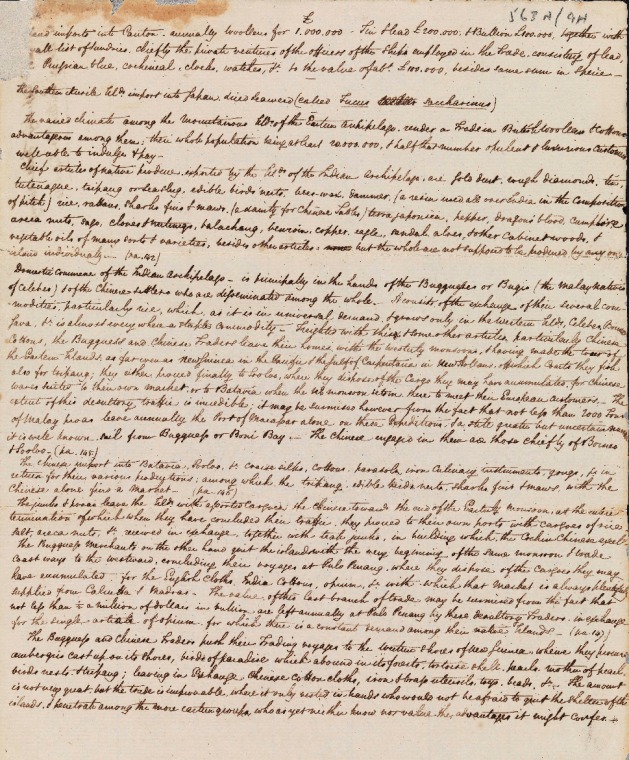 £
563A/9A
and imports into Canton annually woolens for 1,000,000 - Tin & lead £200,000, & Bullion £500,000, together with
all list of Sundries, chiefly the private ventures of the officers of the Ships employed in the trade, consisting of lead,
Prussian blue, cochineal, clocks, watches, &c. to the value of abt. £100,000, besides same sum in specie -
The southern Kurile Islds import into Japan dried seaweed (called Fucus saccharinus)
The varied climate among the mountainous Islds of the Eastern archipelago, render a Trade in British Woolens & Cottons
advantageous among them; their whole population being at least 20,000,000, & half that number opulent & luxurious Customers
well able to indulge & pay -
Chief articles of native produce, exported by the Islds of the Indian Archipelago, are gold dust, rough diamonds, tin,
tutenague, tripang or sea slug, edible birds nests, bees-wax, dammer, (a resin used all over India in the Composition
of pitch) rice, rattans, sharks fins & maws, (a dainty for Chinese tables) terra japonica, pepper, dragons blood, camphire
areca nuts, sago, cloves & nutmegs, balachang, benzoin, copper, eagle, sandal aloes, & other Cabinet woods, &
vegetable oils of many sorts & varieties, besides other articles, but the whole are not supposed to be produced by any one
island individually - (pa. 142)
Domestic commerce of the Indian Archipelago - is principally in the hands of the Bugguesses or Bugis (the malay natives
of Celebes) & of the Chinese settlers who are disseminated among the whole. - It consists of the exchange of their several com-
modities, particularly rice, which, as it is in universal demand, & grows only in the western Islds, Celebes, Borneo
Java, &c. is almost every where a staple commodity - Freighted with this & some other articles, particularly Chinese
Cottons, the Bugguess and Chinese Traders leave their homes with the westerly monsoons, & having made the tour of
the Eastern Islands as far even as New Guinea in the & the Gulf of Carpentaria in New Holland, off which Coasts they fish
also for tripang; they either proceed finally to Sooloo, where they dispose of the Cargo they may have accumulated, for Chinese
wares suited to their own market, or to Batavia when the Ed. monsoon return there to meet their European customers - The
extent of this desultory traffic is incredible; it may be surmised however from the fact that not less than 2000 Tons
of Malay proas leave annually the Port of Macassar alone on these Expeditions, & a still greater but uncertain number
it is well known sail from Bugguess or Boni Bay. - The Chinese engaged in them are those chiefly of Borneo
& Sooloo - (pa. 145)
The Chinese import into Batavia, Sooloo, &c. coarse silks, cottons, parasols, iron Culinary instruments, gongs, &c. in
return for their various productions; among which the tripang, edible birds nests, sharks fins & maws, with the
Chinese alone find a Market - (pa. 145)
The junks & proas leave the Islds with assorted Cargoes, the Chinese towards the end of the Easterly monsoon, at the entire
termination of which when they have concluded their traffic, they proceed to their own ports with cargoes of rice
salt, areca nuts, &c. received in exchange, together with teak junks, in building which, the Cochin Chinese excel.
The Bugguess Merchants on the other hand quit the islands with the very beginning of the same monsoon & trade
coast ways to the westward, concluding their voyages at Pulo Penang, where they dispose of the Cargoes they may
have accumulated for the English Cloths, India Cottons, opium, &c. with which that market is always plentifully
supplied from Calcutta & Madras - The value of this last branch of trade may be surmised from the fact that
not less than ½ a million of dollars in bullion are left annually at Pulo Penang by these desultory Traders, in exchange
for the single article of opium for which there is a constant demand among their native Islands - (pa. 149)
The Bugguess and Chinese Traders push their Trading voyages to the Western Shores of New Guinea, where they procure
ambergris cast up on its shores, birds of paradise which abound in its forests, tortoise shell, pearls, mother of pearl,
birds nests & tripang; leaving in Exchange, Chinese Cotton cloths, iron & brass utensils, toys, beads, &c. - The amount
is not very great, but the trade is improvable, where it only rested in hands who would not be afraid to quit the shelter of the
islands, & penetrate among the more eastern groups, who as yet neither know nor value the advantages it might confer. +